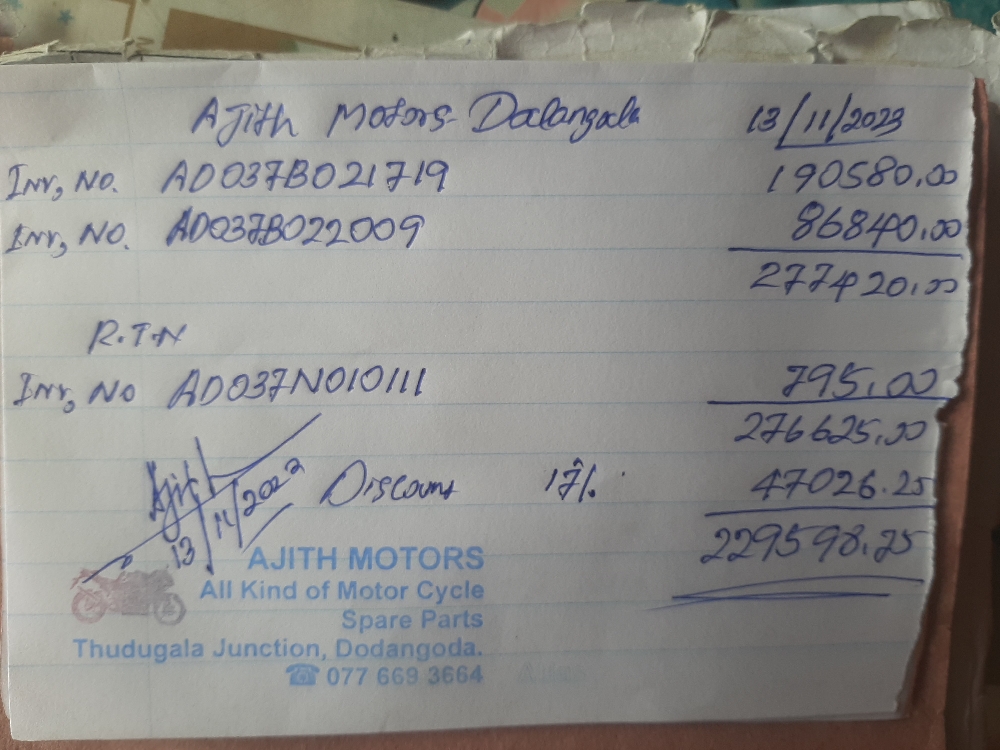 Ajith Motors- Dodangoda 13/11/2023
Inv, No. AD037B021719 190580.00
Inv, No. AD037B022009 86840.00
277420.00
R.T.N
Inv, No AD037N010111 795.00
276625.00
Discount 17% 47026.25
229598.75
Ajith
13/11/2023
AJITH MOTORS
All Kind of Motor Cycle
Spare Parts
Thudugala Junction, Dodangoda.
☎ 077 669 3664